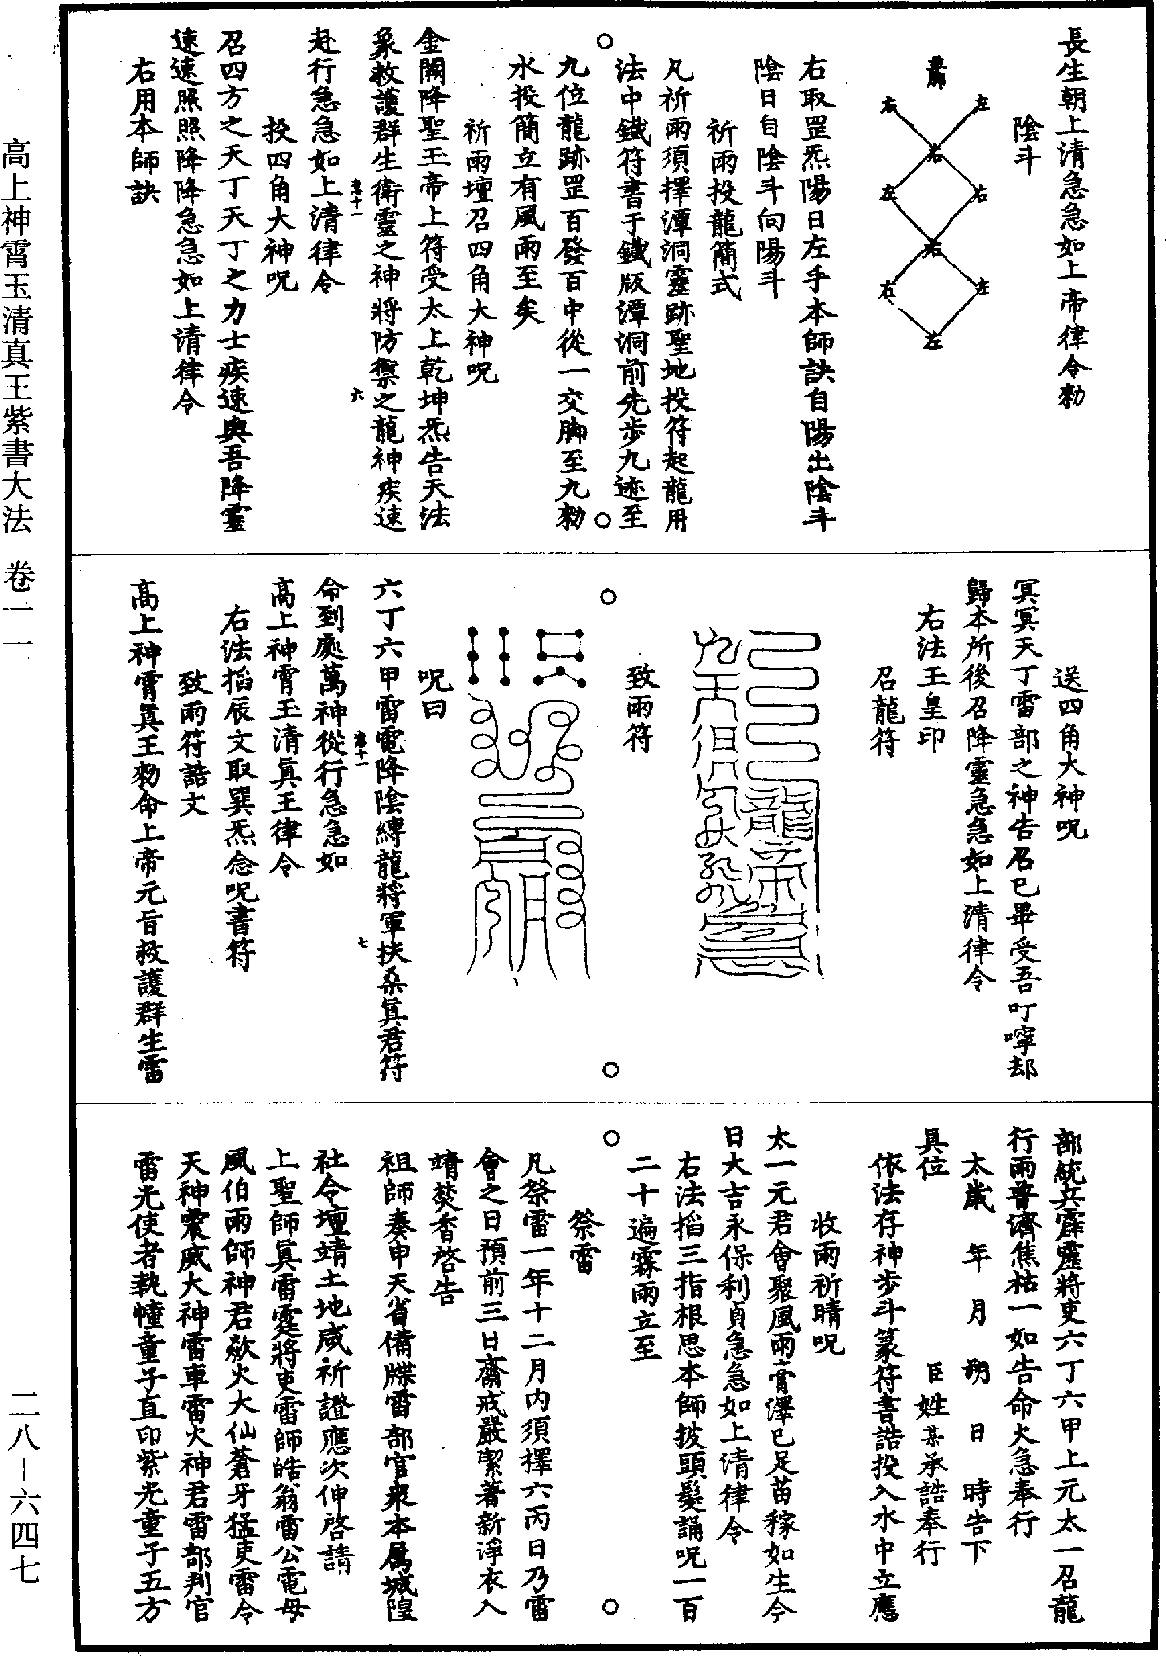 長生朝上清急急如上帝律令勑
陰斗
左
右
右
右
左
右
左
右
左
右取罡炁陽日左手本師訣自陽出陰斗
陰日自陰斗向陽斗
祈雨投龍簡式
凡祈雨須擇潭洞靈跡聖地投符起龍用
法中鐵符書于鐵版潭洞前先步九迹至
九位龍跡罡百發百中從一交脚至九勑
水投簡立有風雨至矣
祈雨壇召四角大神呪
金闕降聖玉帝上符受太上乾坤炁告天法
象救護群生衛靈之神將防禦之龍神疾速
卷十一
六
赴行急急如上清律令
投四角大神呪
召四方之天丁天丁之力士疾速與吾降靈
速速照照降降急急如上清律令
右用本師訣
送四角大神呪
冥冥天丁雷部之神告召已畢受吾叮嚀却
歸本所後召降靈急急如上清律令
右法王皇印
召龍符
致雨符
呪曰
六丁六甲雷電降陰縛龍將軍扶桑真君符
卷十一
七
命到處萬神從行急急如
高上神霄玉清真王律令
右法搯辰文取巽炁念呪書符
致雨符誥文
高上神霄真王勑命上帝元旨救護群生雷
部統兵霹靂將吏六丁六甲上元太一召龍
行雨普濟焦枯一如告命火急奉行
太歲 年 月 朔 日 時告下
具位 臣姓某承誥奉行
依法存神步斗篆符書誥投入水中立應
收雨祈晴呪
太一元君會聚風雨膏澤已足苗稼如生今
日大吉永保利貞急急如上清律令
右法搯三指根思本師披頭髮誦呪一百
二十遍霖雨立至
祭雷
凡祭雷一年十二月内須擇六丙日乃雷
會之日預前三日齋戒嚴潔著新淨衣入
靖焚香啓告
祖師奏申天省備牒雷部官衆本属城隍
社令壇靖土地咸祈證應次伸啓請
上聖師真雷霆將吏雷師皓翁雷公電母
風伯雨師神君歘火大仙蒼牙猛吏雷令
天神震威大神雷車雷火神君雷部判官
雷光使者執幢童子直印紫光童子五方
高上神霄玉清真王紫書大法 卷一一
二八－六四七